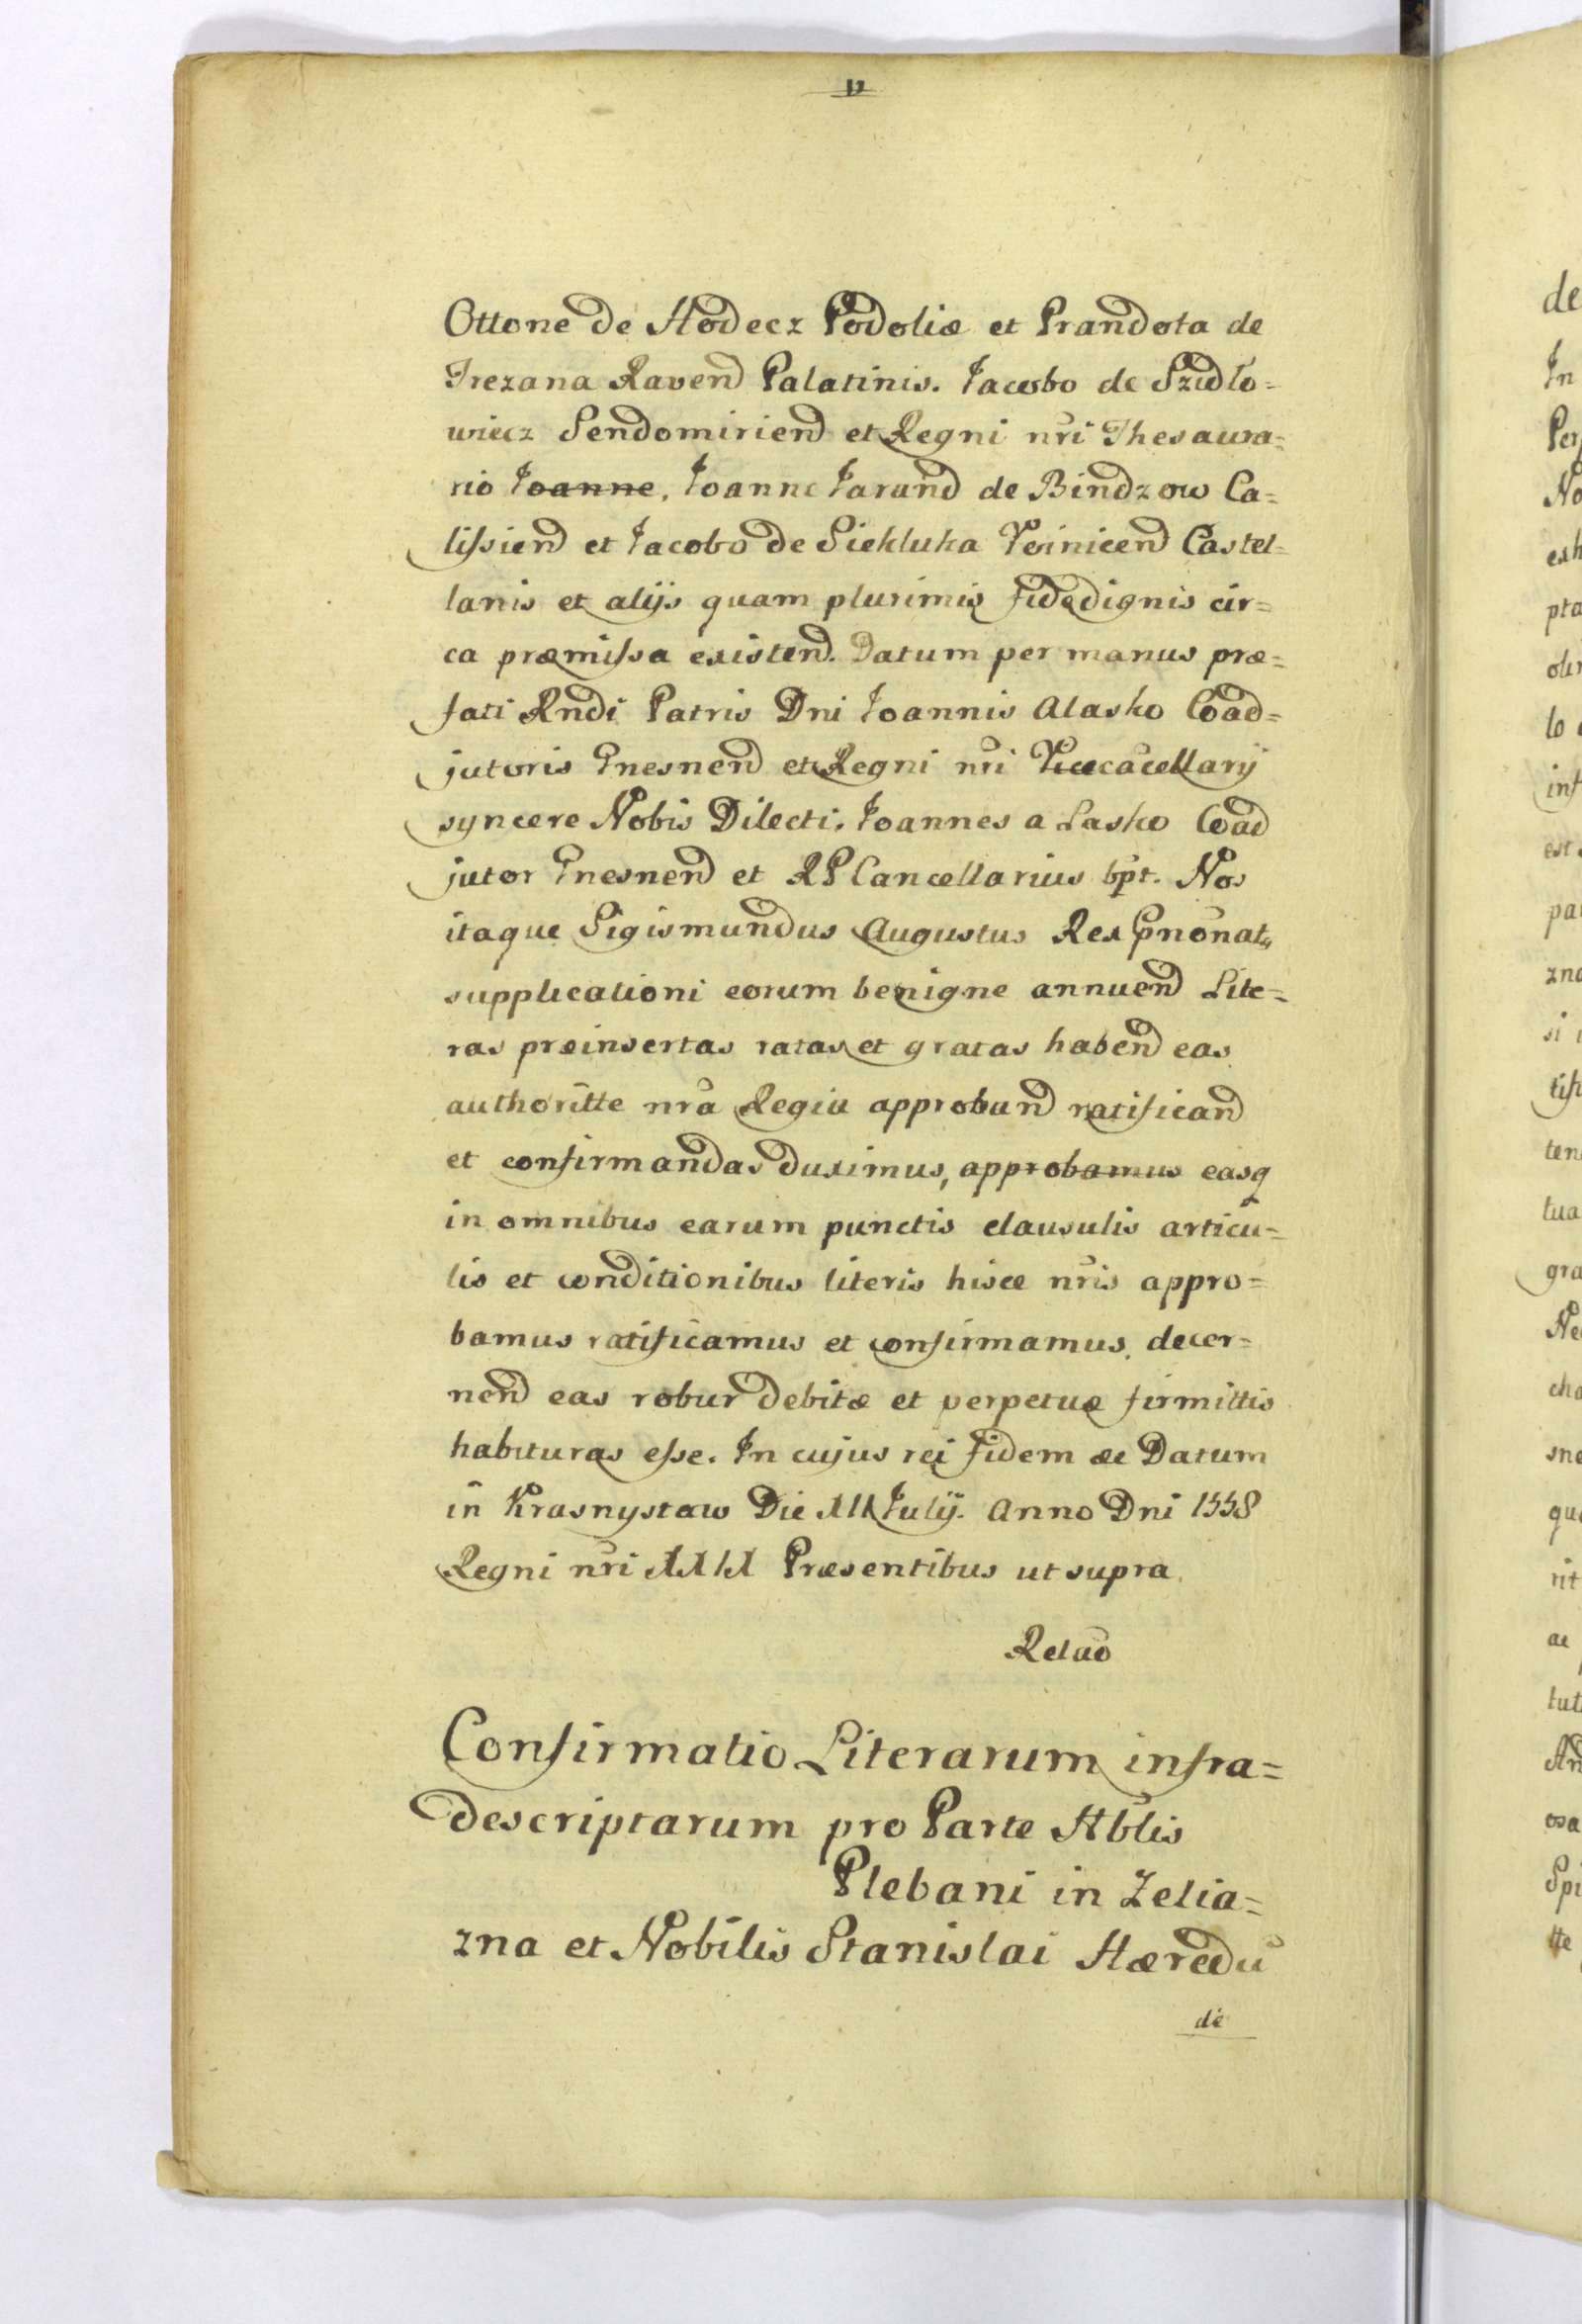 12
Ottone de Hodecz Podoliæ et Prandota de
Trezana Ravend Palatinis. Jacobo de Szidlo=
wiecz Sendomiriend et Regni nri Thesaura=
rio Joanne, Joanne Jarand de Bindzow Ca=
lissiend et Jacobo de Siekluka Voinicend Castel=
lanis et alijs quam plurimis fidedignis cir=
ca præmissa existend. Datum per manus præ=
fati Rndi Patris Dni Joannis Alasko Coad=
jutoris Gnesnend et Regni nri Vicecacellarij
syncere Nobis Dilecti. Joannes a Lasko Coad
jutor Gnesnend et RP Cancellarius bpt. Nos
itaque Sigismundus Augustus Rex Pnonat„
supplicationi eorum benigne annuend Lite=
ras præinsertas ratas et gratas habend eas
authoritte nra Regia approband ratificand
et confirmandas duximus, approbamus easq
in omnibus earum punctis clausulis articu=
lis et conditionibus literis hisce nris appro=
bamus ratificamus et confirmamus. decer=
nend eas robur debitæ et perpetuæ firmittis
habituras esse. In cujus rei fidem &c Datum
in Krasnystaw Die Julij. Anno Dni 1558
Regni nri Præsentibus ut supra.
Relao
Confirmatio Literarum infra=
descriptarum pro Parte Hblis
Plebani in Zelia=
zna et Nobilis Stanislai Hæredu
de